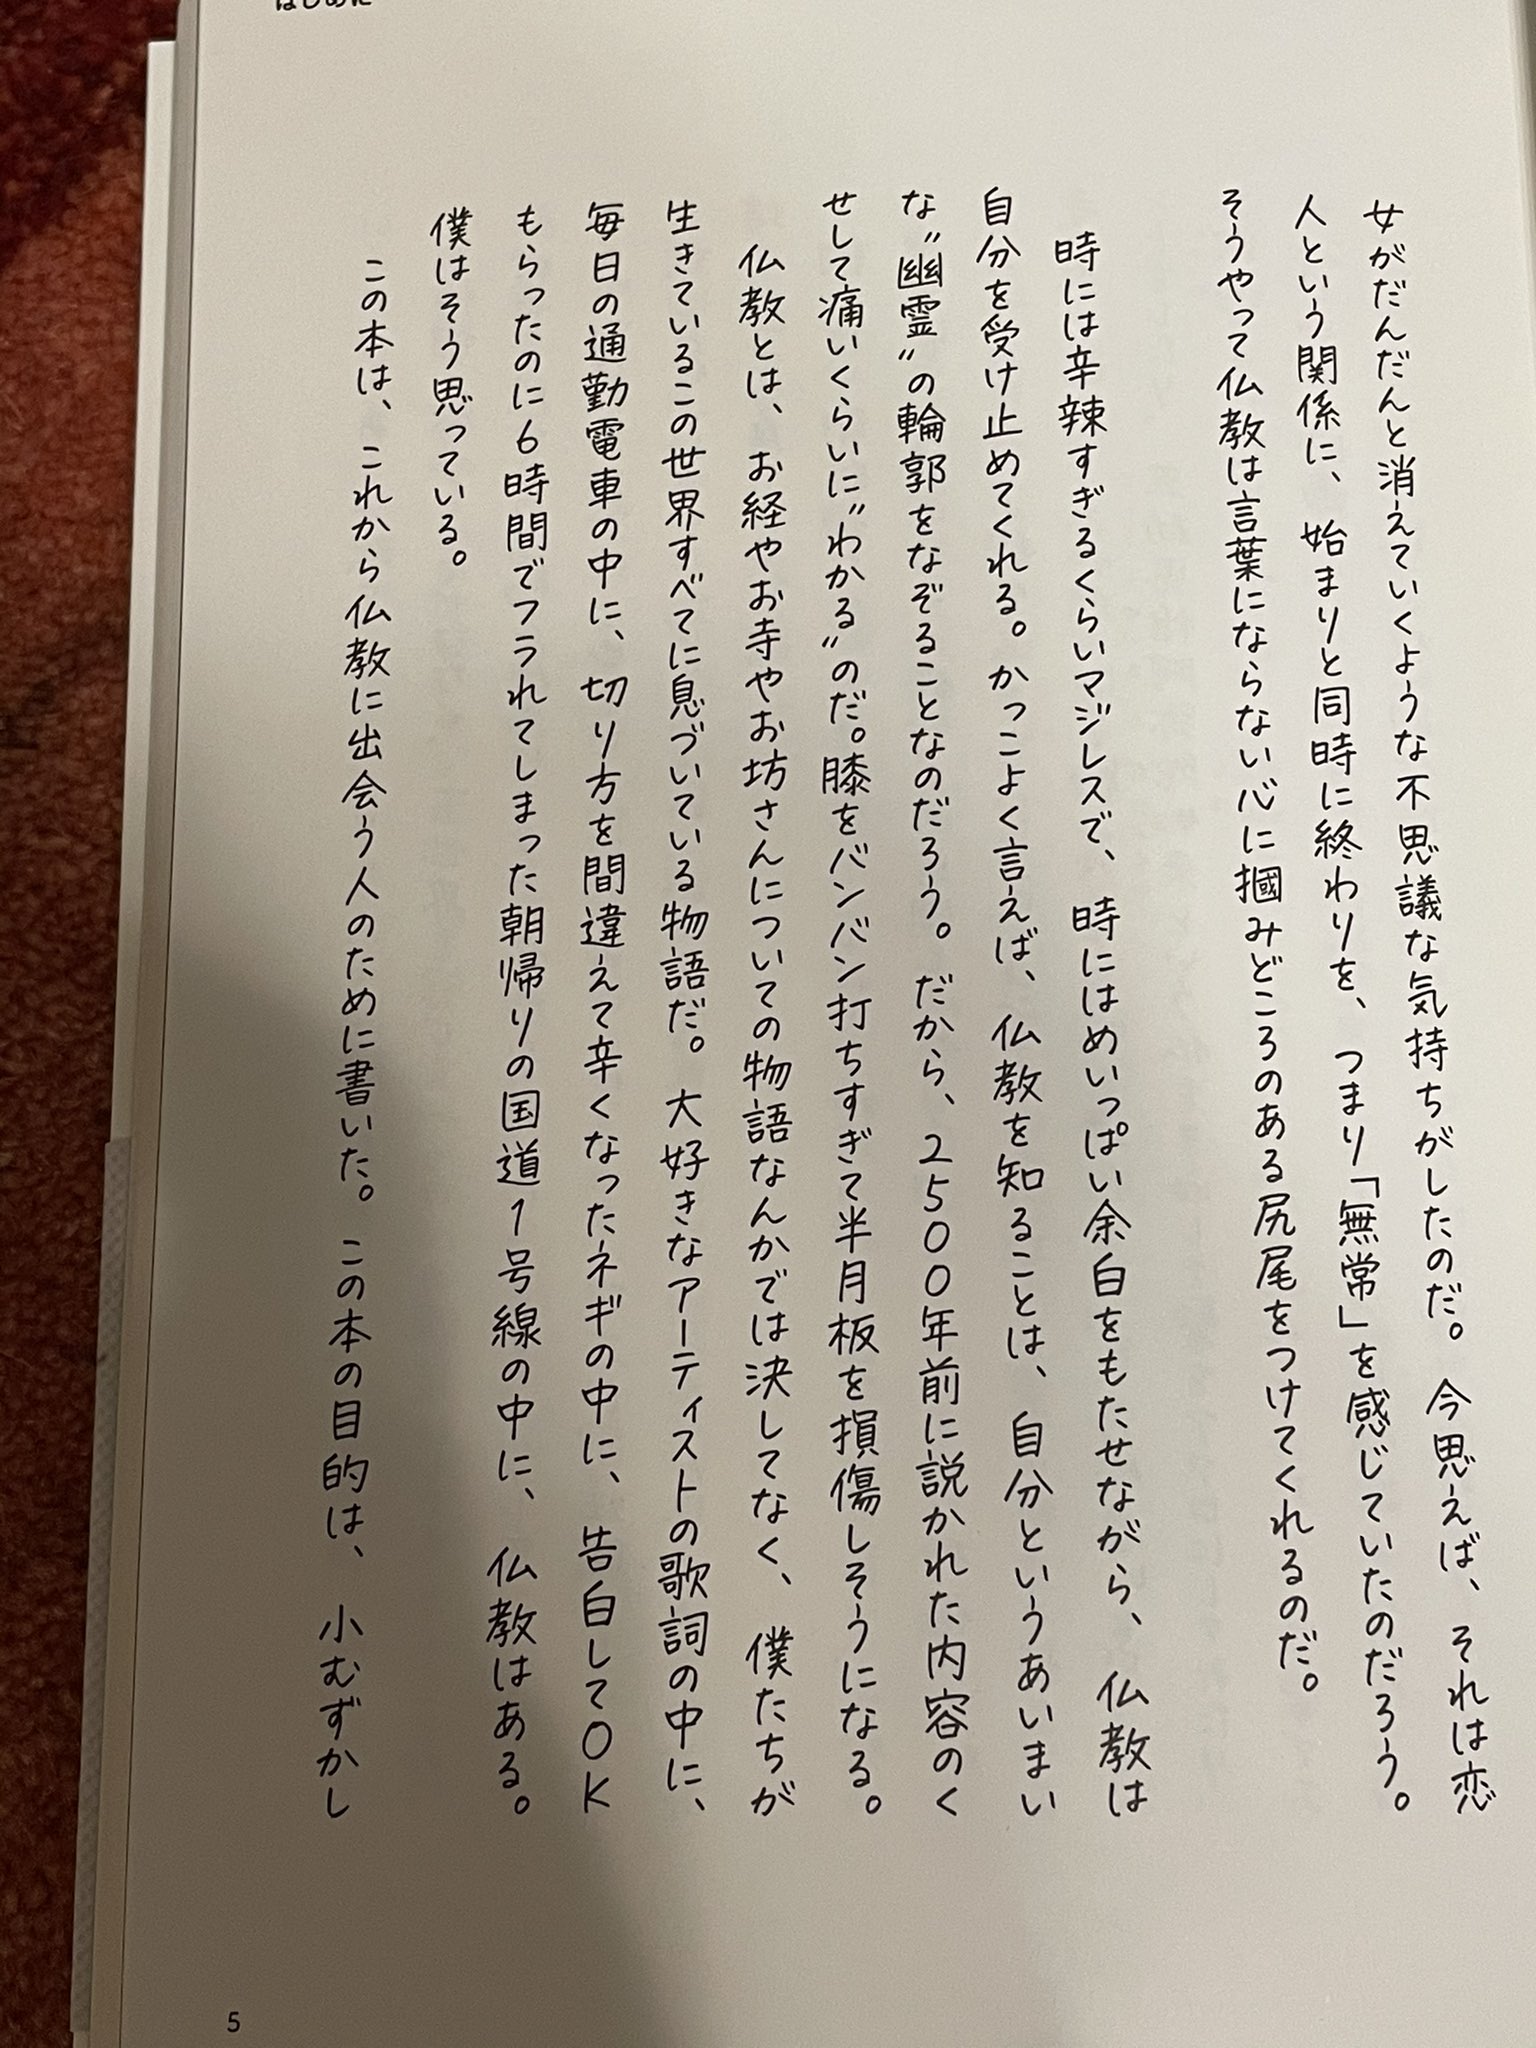 はじめに
女がだんだんと消えていくような不思議な気持ちがしたのだ。今思えば、それは恋
人という関係に、始まりと同時に終わりを、つまり「無常」を感じていたのだろう。
そうやって仏教は言葉にならない心に掴みどころのある尻尾をつけてくれるのだ。
時には辛辣すぎるくらいマジレスで、時にはめいっぱい余白をもたせながら、仏教は
自分を受け止めてくれる。かっこよく言えば、仏教を知ることは、自分というあいまい
な〝幽霊〟の輪郭をなぞることなのだろう。だから、2500年前に説かれた内容のく
せして痛いくらいに〝わかる〟のだ。膝をバンバン打ちすぎて半月板を損傷しそうになる。
仏教とは、お経やお寺やお坊さんについての物語なんかでは決してなく、僕たちが
生きているこの世界すべてに息づいている物語だ。大好きなアーティストの歌詞の中に、
毎日の通勤電車の中に、切り方を間違えて辛くなったネギの中に、告白してOK
もらったのに6時間でフラれてしまった朝帰りの国道1号線の中に、仏教はある。
僕はそう思っている。
この本は、これから仏教に出会う人のために書いた。この本の目的は、小むずかし
5